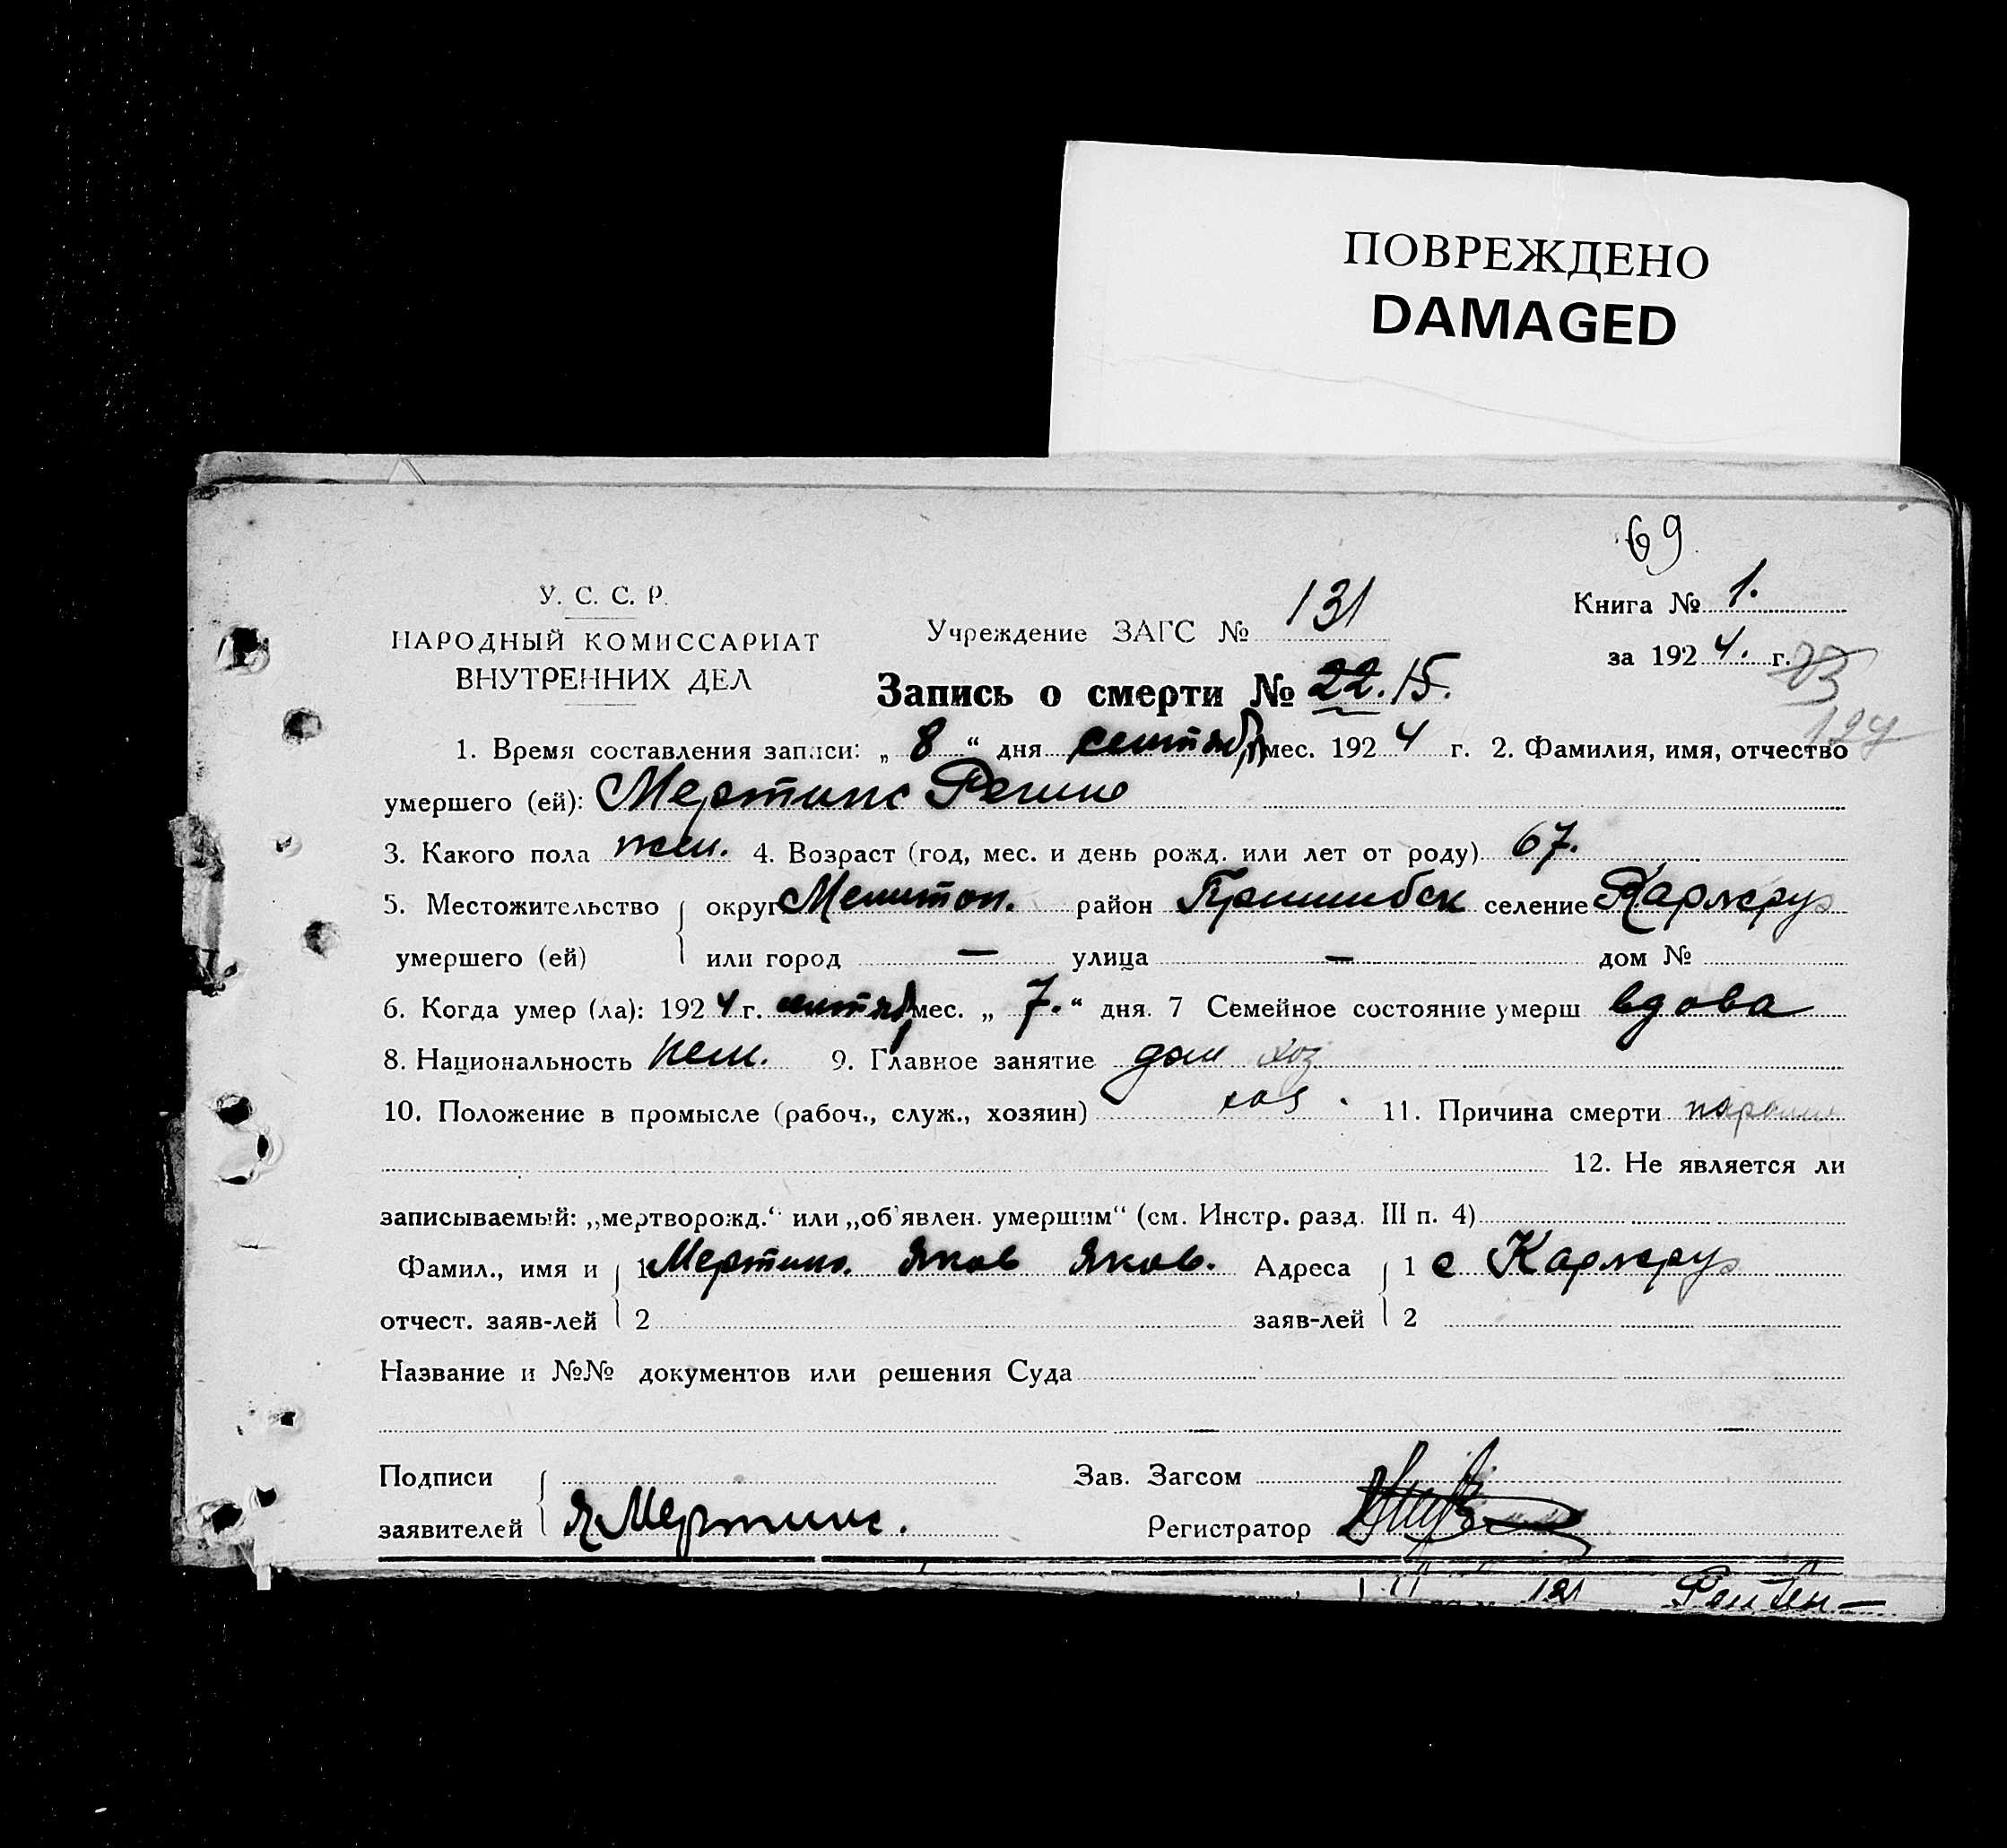 ПОВРЕЖДЕНО
DAMAGED
69
У. С. С. Р.
НАРОДНЫЙ КОМИССАРИАТ
ВНУТРЕННИХ ДЕЛ
Учреждение ЗАГС № 131
Книга № 1.
за 1924. г.
Запись о смерти № 22. 15.
124
1. Время составления записи: „ 8 “ дня сентяб мес. 1924 г. 2. Фамилия, имя, отчество
умершего (ей): Мертинс Регине
3. Какого пола жен. 4. Возраст (год, мес. и день рожд. или лет от роду) 67.
5. Местожительство округ Мелитоп. район Пришибск селение Карлсруэ
умершего (ей) или город — улица — дом №
6. Когда умер (ла): 1924 г. сентяб мес. „ 7. “ дня. 7 Семейное состояние умерш вдова
8. Национальность нем. 9. Главное занятие дом хоз
10. Положение в промысле (рабоч., служ., хозяин) хоз. 11. Причина смерти
12. Не является ли
записываемый: „мертворожд.“ или „об'явлен. умершим“ (см. Инстр. разд. III п. 4)
Фамил., имя и 1 Мертинс. Яков Яков. Адреса 1 с Карлсруэ
отчест. заяв-лей 2 заяв-лей 2
Название и №№ документов или решения Суда
Подписи Зав. Загсом
заявителей Я. Мертинс. Регистратор
131